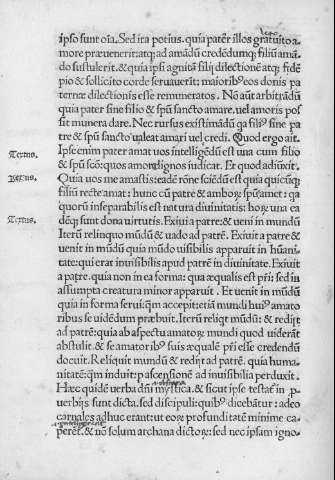 ipso sunt oīa. Sed ita potius. quia pater illos gratuito a-
more præuenerit: atq; ad amādū credēdumq; filiū amā.
do sustulerit. & quia ipsi agnitā filij dilectionē atq; fidē
pio & sollicito corde seruauerīt: maiorib⁹ eos donis pa
ternæ dilectionis esse remuneratos. Nō aūt arbitrādū
quia pater sine filio & spū sancto amare. uel amoris pos
sit munera dare. Nec rursus existimādū qa fili⁹ sine pa
tre & spū sancto ualeat amari uel credi. Quod ergo ait.
Textus.
Ipse enim pater amat uos intelligēdū est una cum filio
& spū scō: quos amore dignos iudicat. Et quod adiūxit.
Textus.
Quia uos me amastis: eadē rōne sciēdū est quia quicūq;
filiū recte amat: hunc cū patre & amborꝝ spū amet: qa
quorū inseparabilis est natura diuinitatis: horꝝ una cā
Textus.
dēq; sunt dona uirtutis. Exiui a patre: & ueni in mundū
Iterū relinquo mūdū & uado ad patrē. Exiuit a patre &
uenit in mūdū quia mūdo uisibilis apparuit in hūani
tate: qui erat inuisibilis apud patrē in diuinitate. Exiuit
a patre. quia non in ea forma: qua æqualis est pri: sed in
assumpta creatura minor apparuit. Et uenit in mūdū
quia in forma serui: qm̄ accepit: etiā mundi hui⁹ amato
ribus se uidēdum præbuit. Iterū reliqt mūdū: & redijt
ad patrē: quia ab aspectu amatorꝝ mundi quod uiderāt
abstulit. & se amatorib⁹ suis æqualē pri esse credendū
docuit. Reliquit mundū & redijt ad patrē. quia huma-
nitatē: qm induit: p ascensionē ad inuisibilia perduxit.
Hæc quidē uerba dn̄i mystica. & sicut ipse testat in p
uerbijs sunt dicta. sed discipuli: quib⁹ dicebātur: adeo
carnales adhuc erant: ut eorꝝ profunditatē minime ca-
perēt. & nō solum archana dictorꝝ: sed nec ipsam igno-